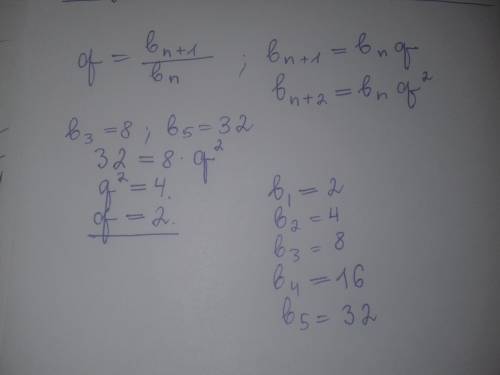 q = b_{n+1} / b_n ; b_{n+1} = b_n q
b_{n+2} = b_n q^2
b_3 = 8 ; b_5 = 32
32 = 8 · q^2
q^2 = 4.
q = 2.
b_1 = 2
b_2 = 4
b_3 = 8
b_4 = 16
b_5 = 32